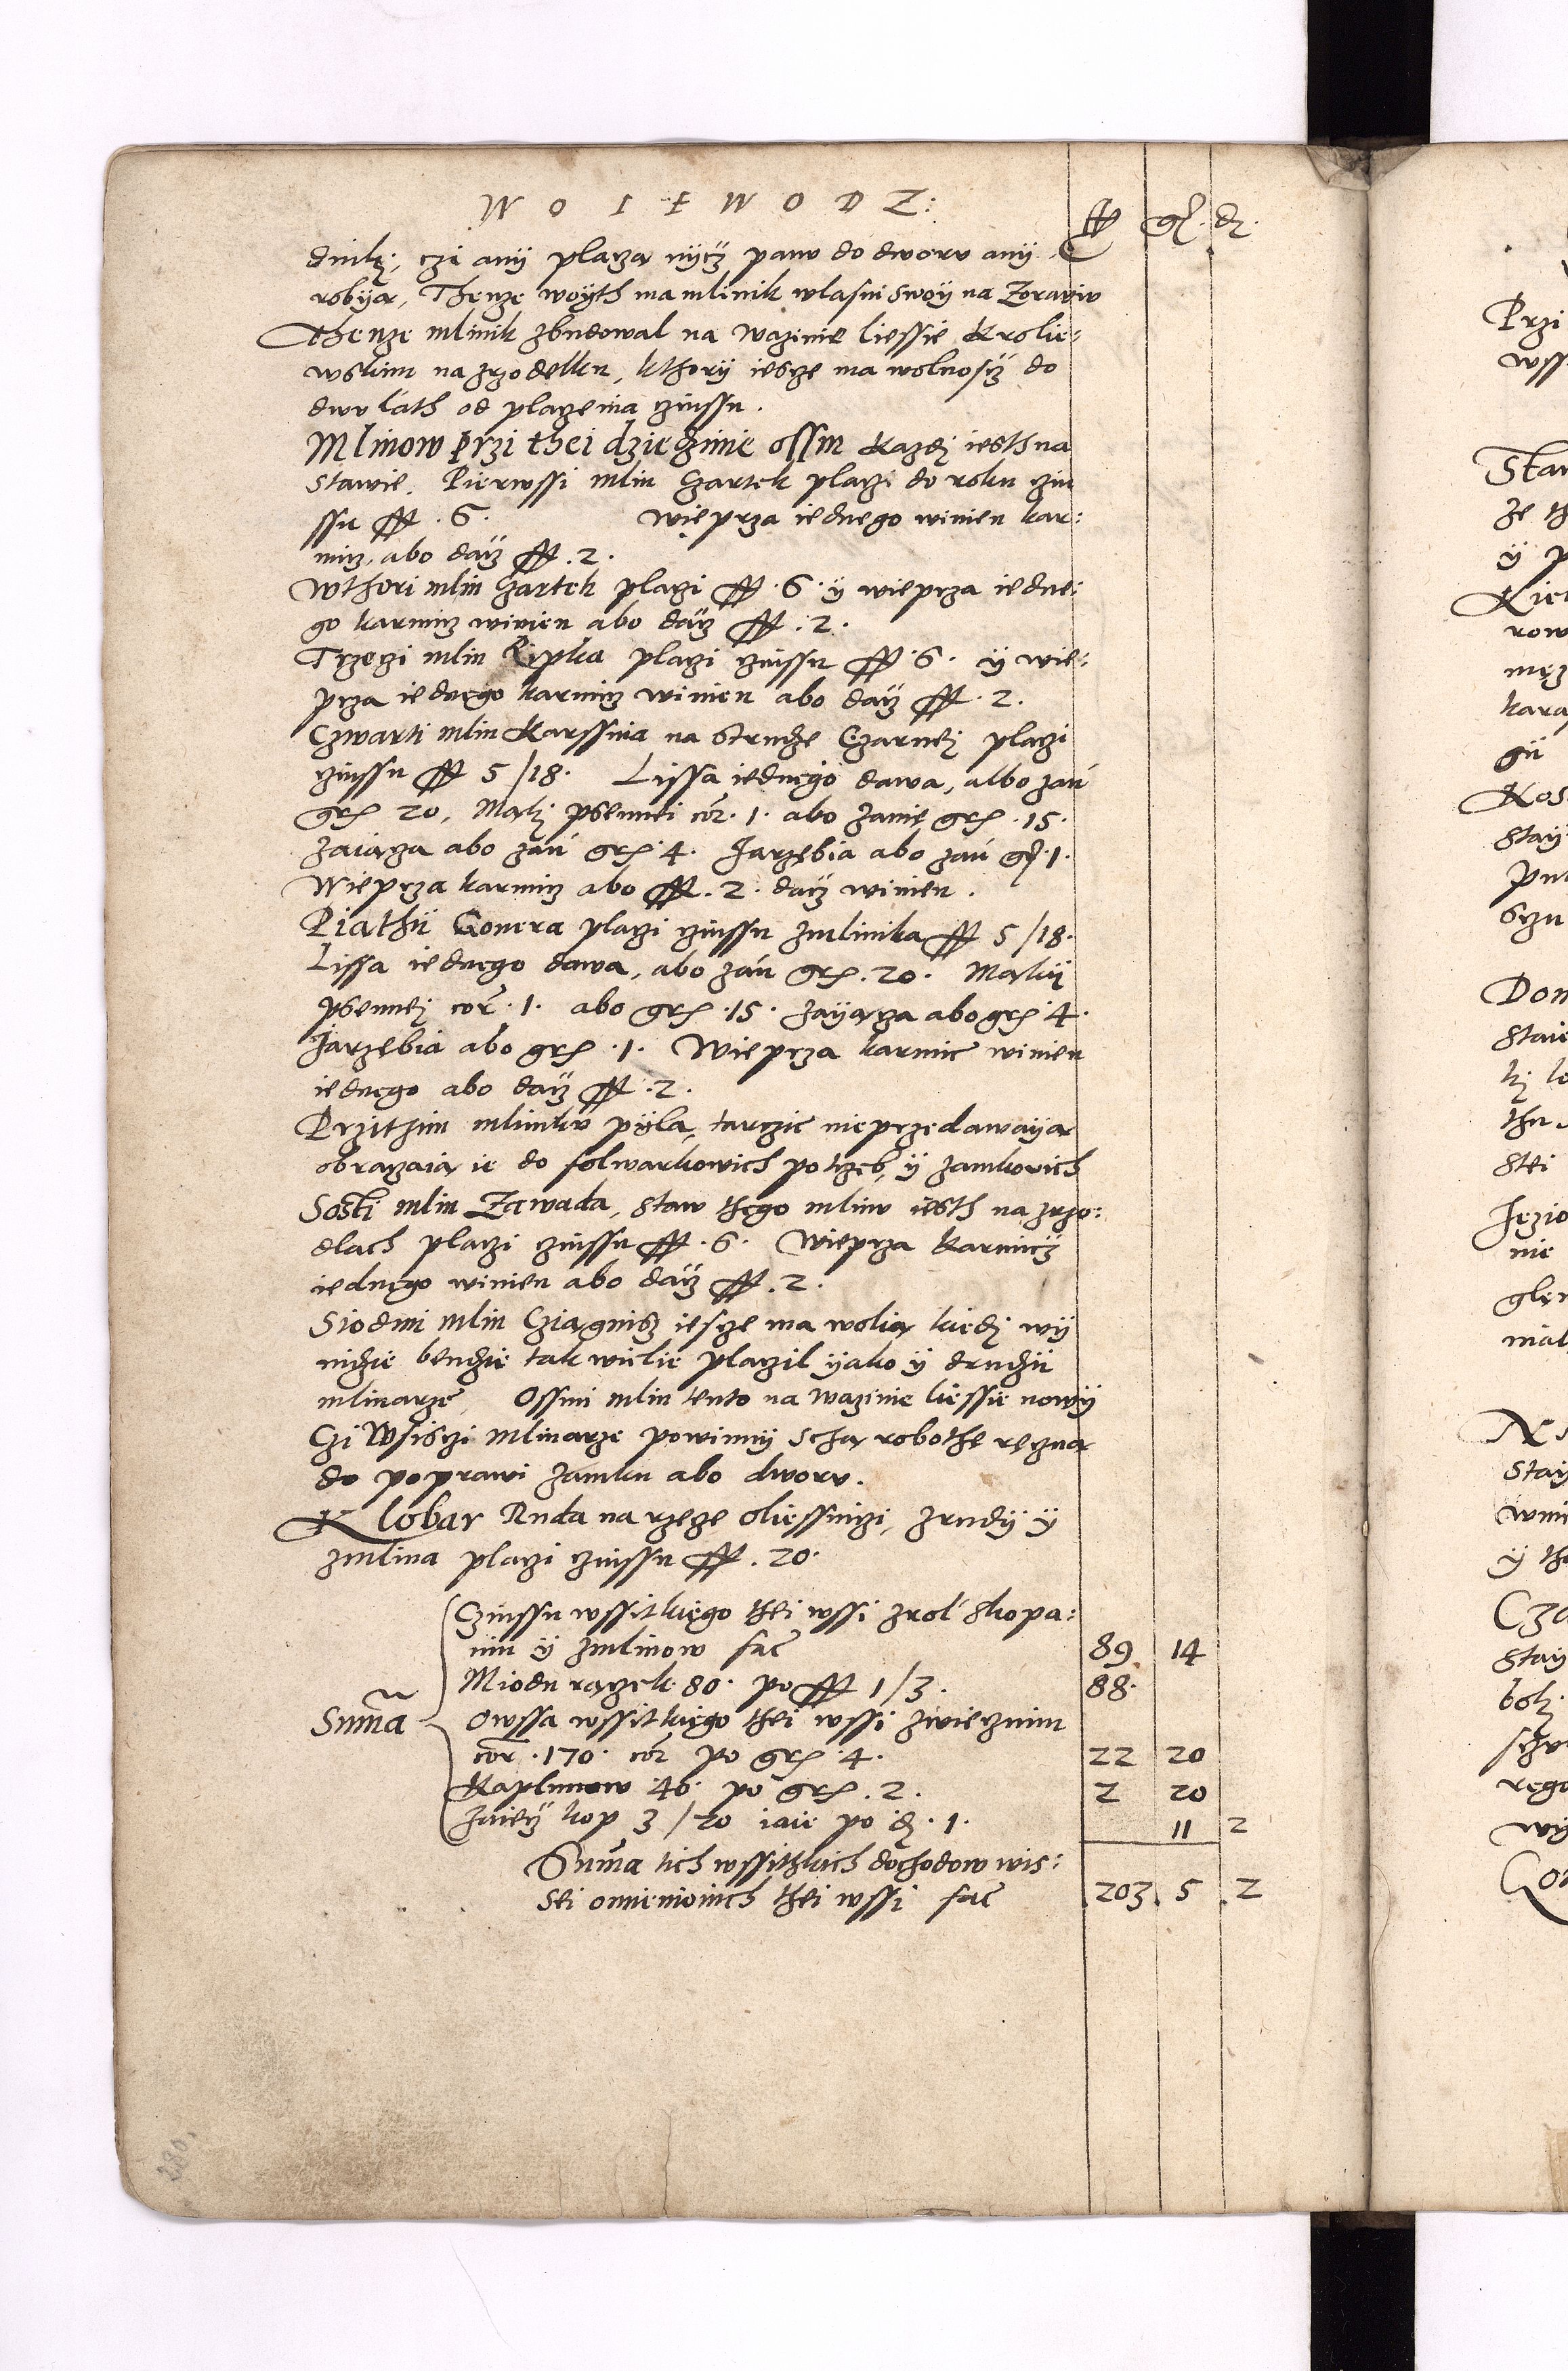 WOIEWODZ:
ff gr. d.
dnikę, czi any placzą nycz panv do dworv any
robyą, Thenze woyth ma mlinik wlasni swoy na Zorawiv
Thenze mlinik zbudowal na Wazinie liessie Krolie:
wskim na zrzodelku, kthory iescze ma wolnoscz do
dwv lath od placzenia czinssu.
Mlinow przi thei dziedzinie ossm Kazdi iesth na
stawie. Pierwssi mlin Czartek placzi do roku czin
ssu ff. 6. Wieprza iednego winien kar:
micz, abo dacz ff. 2.
Wthori mlin Czartek placzi ff. 6. y wieprza iedne:
go karmicz winien abo dacz ff. 2.
Trzeczi mlin Ripka placzi czinssu ff. 6. y wie:
prza iednego karmicz winien abo dacz ff. 2.
Czwarti mlin Karssnia na Strudze Czarnei placzi
czinssu ff 5/18. Lissa iednego dawa, albo zań
gr. 20, Mąki psennei cor. 1. abo zanię gr. 15.
zaiącza abo zań gr. 4. Jarzębia abo zań gr. 1.
Wieprza karmicz abo ff. 2. dacz winien.
Piathy Gonera placzi czinssu zmlinika ff 5/18.
Lissa iednego dawa, abo zań gr. 20. Mąky
psennei cor. 1. abo gr. 15. zayącza abo gr. 4.
Jarzębia abo gr. 1. Wieprza karmic winien
iednego abo dacz ff. 2.
Przithim mlinikv pyla, tarczic nieprzedawayą
obraczaią ie do folwarkowich potrzeb, y zamkowich
Sosti mlin Zawada, staw thego mlinv iesth na zrzo:
dlach placzi czinssu ff. 6. Wieprza Karmicz
iednego winien abo dacz ff. 2.
Siodmi mlin Cziągnisz iescze ma wolią kiedi wy
nidzie bendzie tak wielie placzil yako y drudzy
mlinarze, Ossmi mlin tento na Wazinie liessie nowy
Czi Wsisczi mlinarze powinny scha robothę ręczną
do poprawi zamku abo dworv.
Klobar Ruda na rzecze oliessniczi, zrudy y
zmlina placzi czinssu ff. 20.
Summa
Czinssu wssitkiego thei wssi zrol skopa:
nin y zmlinow fac 89 14
Miodu rączek 80. po ff 1/3. 88.
Owssa wssitkiego thei wssi zwiecznim
cor. 170. cor po gr. 4. 22 20
Kaplunow 40. po gr. 2. 2 20
Jaiey kop 3/20 iaie po d. 1. 11 2
Summa tich wssithkich dochodow wis:
sei omienionich thei wssi fac 203. 5 2
280.